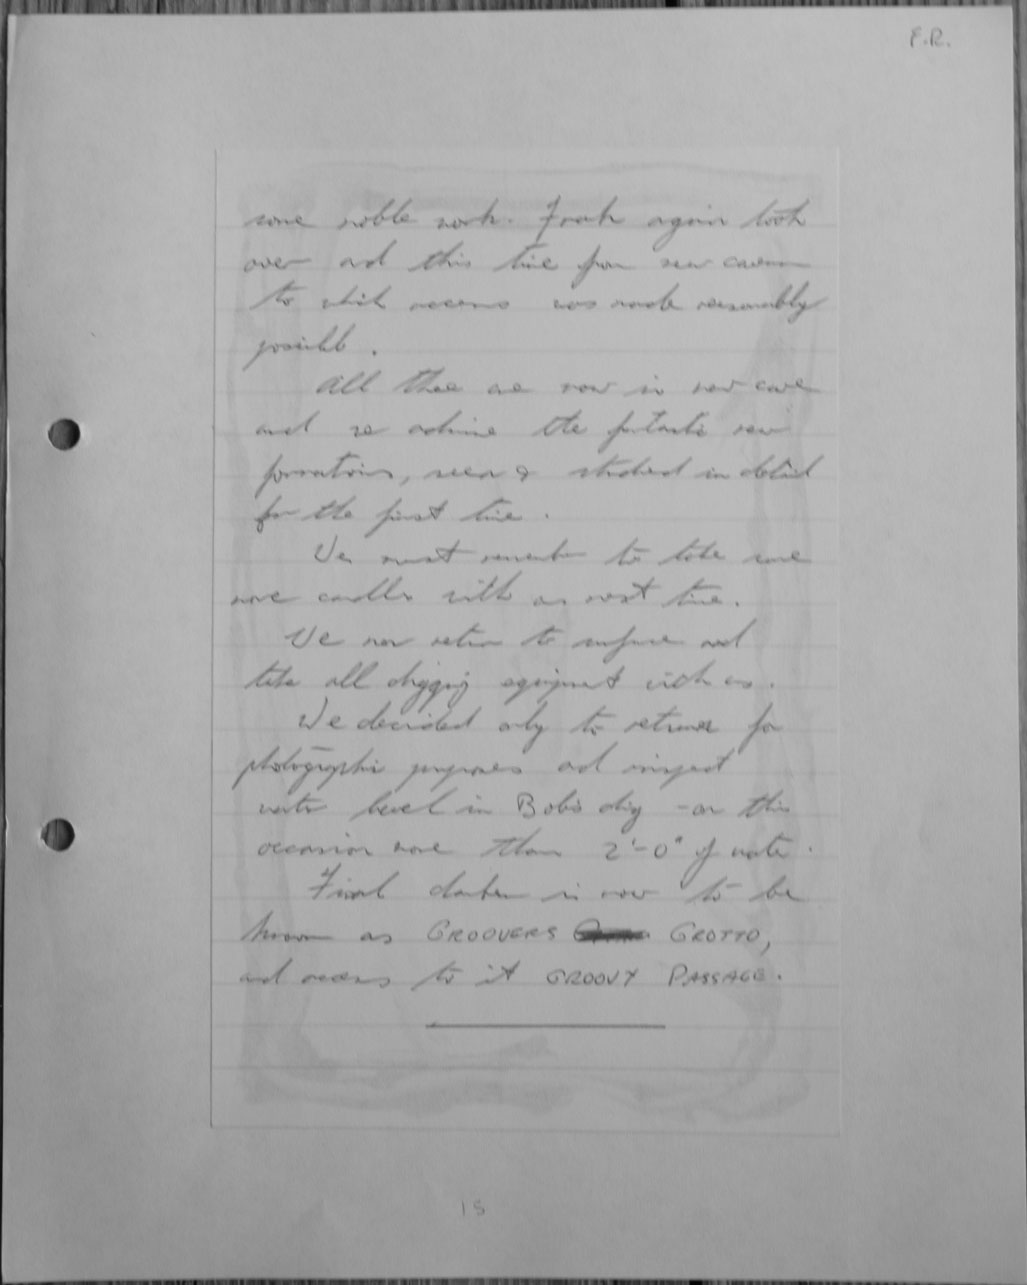 F.R.
some noble work. Frank again took
over and this time from new cavern
to which access was made reasonably
possible.
All three are now in new cave
and we admire the fantastic new
formations, seen & studied in detail
for the first time.
We must remember to take some
more candles with us next time.
We now return to surface and
take all digging equipment with us.
We decided only to return for
photographic purposes and inspect
water level in Bob's dig - on this
occasion more than 2'-0" of water.
Final chamber is now to be
known as GROOVERS GROTTO,
and access to it GROOVY PASSAGE.
15